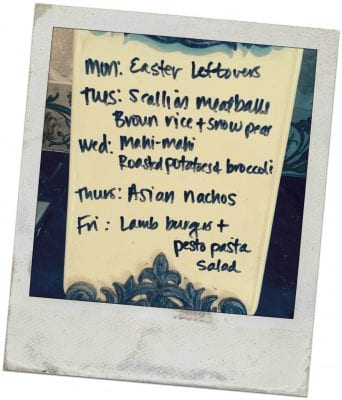 Mon: Easter Leftovers
Tues: Scallion meatballs
Brown rice + snow peas
Wed: Mahi-mahi
Roasted potatoes + broccoli
Thurs: Asian nachos
Fri: Lamb burgers +
pesto pasta
salad